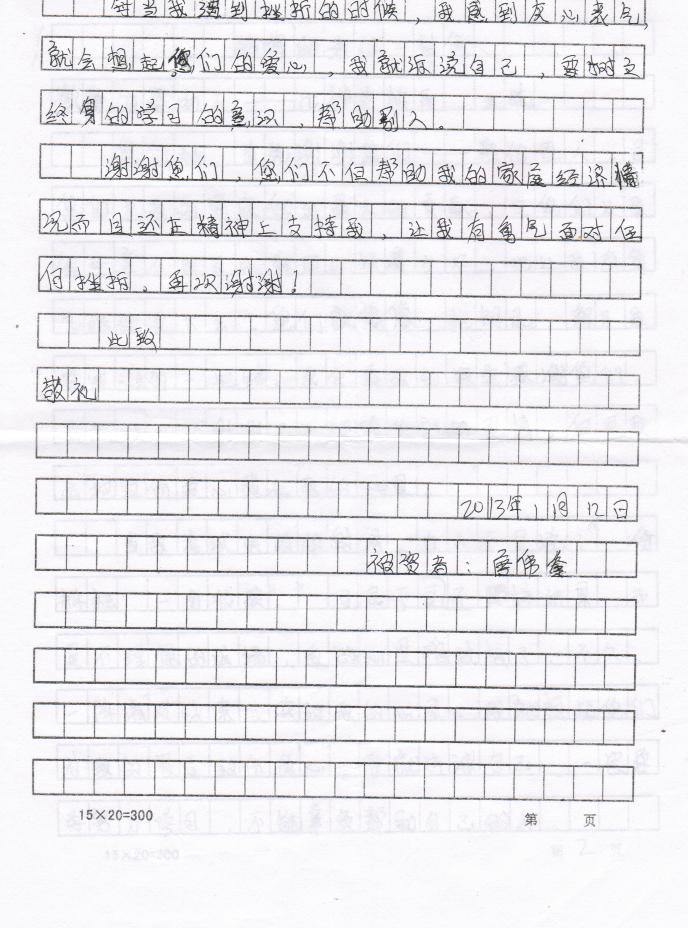 每当我遇到挫折的时候，我感到灰心丧气，
就会想起您们的爱心，我就诉说自己，要树立
终身的学习的意识，帮助别人。
谢谢您们，您们不但帮助我的家庭经济情
况而且还在精神上支持我，让我有勇气面对任
何挫折，再次谢谢！
此致
敬礼
2013年1月12日
被资者：唐伟鑫
15×20=300 第 页